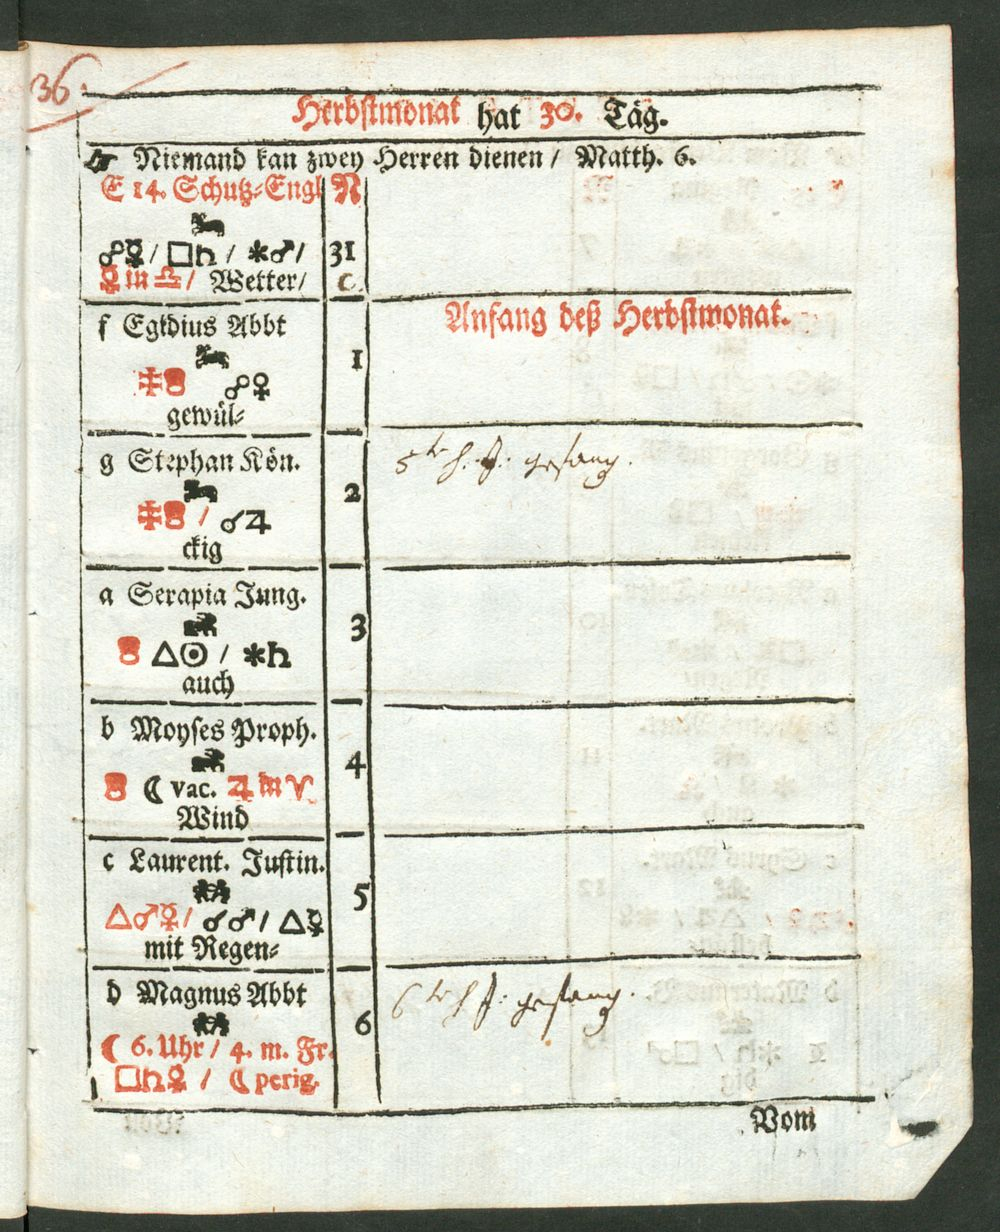 36.
Herbstmonat hat 30. Täg.
Niemand kan zwey Herren dienen / Matth. 6.
E 14. Schutz-Engl N
☍☿ / □♄ / ⚹♂ / 31
☿ in ♎ / Wetter /
Anfang deß Herbstmonat.
f Egidius Abbt
1
☍♀
gewül-
g Stephan Kön.
5te h. gesang.
2
/ ☌♃
ckig
a Serapia Jung.
3
△☉ / ⚹♄
auch
b Moyses Proph.
4
☾ vac. ♃ in ♈
Wind
c Laurent. Justin.
5
△♂☿ / ☌♂ / △☿
mit Regen-
d Magnus Abbt
6te gesang.
6
☾ 6. Uhr / 4. m. Fr.
□♄☿ / ☾ perig.
Vom